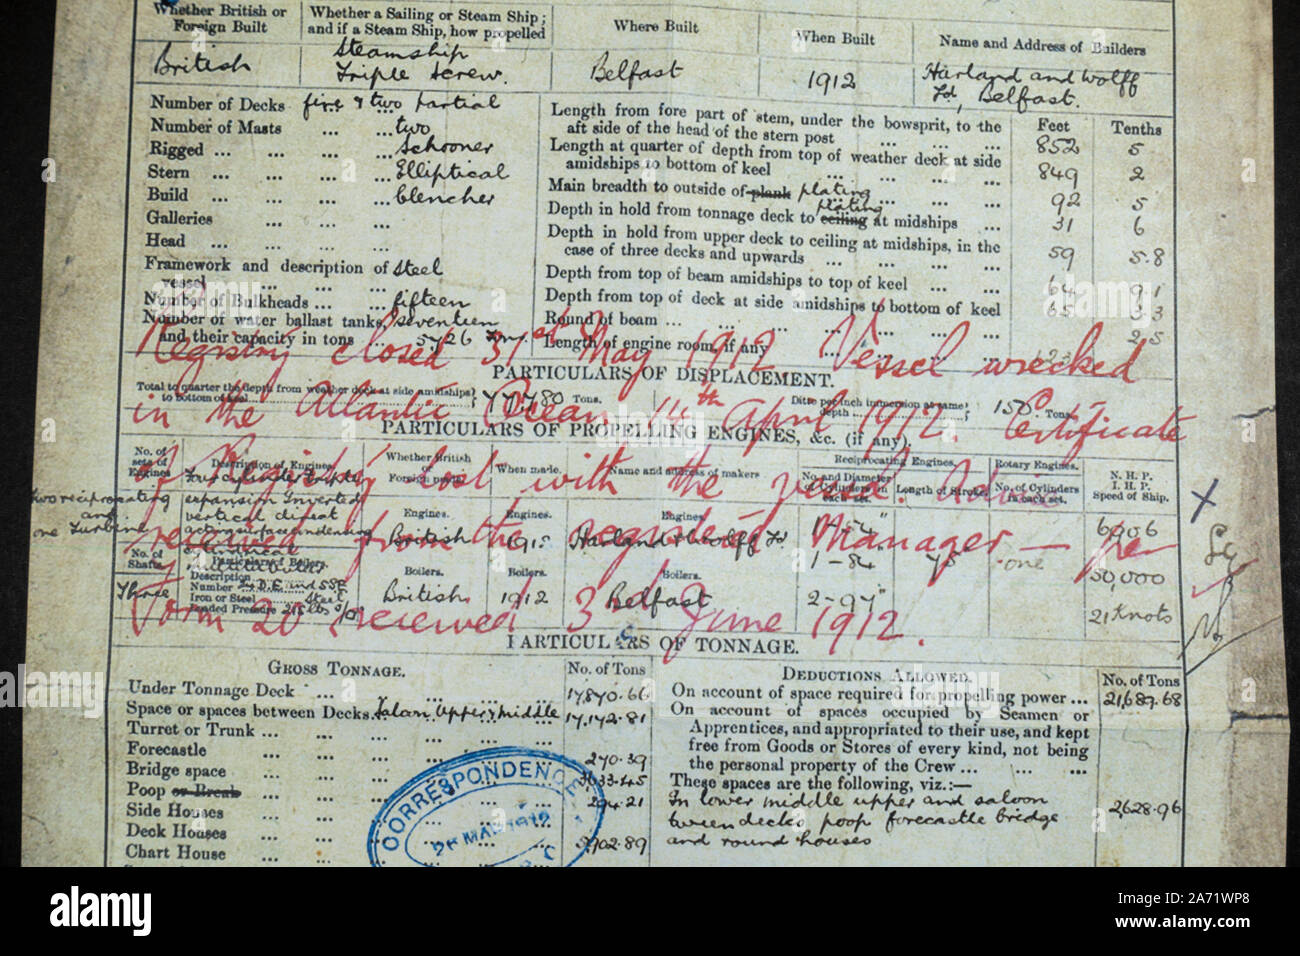 Whether British or Foreign Built
British
Whether a Sailing or Steam Ship; and if a Steam Ship, how propelled
Steamship
Triple Screw.
Where Built
Belfast
When Built
1912
Name and Address of Builders
Harland and Wolff
Ld, Belfast.
Number of Decks five & two partial
Number of Masts ... ... two
Rigged ... ... ... ... Schooner
Stern ... ... ... ... Elliptical
Build ... ... ... ... clencher
Galleries ... ... ...
Head ... ... ... ...
Framework and description of vessel ... ... ... Steel
Number of Bulkheads ... ... fifteen
Number of water ballast tanks, seventeen
and their capacity in tons ... 5726 Tons
Feet Tenths
Length from fore part of stem, under the bowsprit, to the aft side of the head of the stern post ... ... ... 852 5
Length at quarter of depth from top of weather deck at side amidships to bottom of keel ... ... ... ... 849 2
Main breadth to outside of plank plating ... ... ... 92 5
Depth in hold from tonnage deck to ceiling plating at midships ... 31 6
Depth in hold from upper deck to ceiling at midships, in the case of three decks and upwards ... ... ... ... 59 5.8
Depth from top of beam amidships to top of keel ... ... 64 9.1
Depth from top of deck at side amidships to bottom of keel 65 3.3
Round of beam ... ... ... ... ... 2.5
Length of engine room, if any ... ... ...
Registry closed 31st May 1912 Vessel wrecked
in the Atlantic Ocean 14th April 1912. Certificate
of Registry lost with the vessel. Advice
received from the registered Manager — per
Form 20 received 3rd June 1912.
PARTICULARS OF DISPLACEMENT.
Total to quarter the depth from weather deck at side amidships to bottom of keel 77780 Tons.
Ditto per inch immersion at same depth ... 150 Tons
PARTICULARS OF PROPELLING ENGINES, &c. (if any).
No. of sets of Engines
Description of Engines
Whether British or Foreign made
When made.
Name and address of makers
Reciprocating Engines.
No. and Diameter of Cylinders in each set.
Length of Stroke.
Rotary Engines.
No. of Cylinders in each set.
N. H. P.
I. H. P.
Speed of Ship.
two reciprocating
and
one Turbine
Four cylinder triple
expansion inverted
vertical direct
acting surface condensing
Engines.
British
Engines.
1912
Engines.
Harland & Wolff Ld
1-54"
1-84"
2-97"
75"
one
6906
50,000
21 Knots
No. of Shafts.
Three
Particulars of Boilers.
Description
Number 24 D.E and 5 S.E
Iron or Steel Steel
Loaded Pressure 215 lbs
Boilers.
British
Boilers.
1912
Boilers.
Belfast
PARTICULARS OF TONNAGE.
GROSS TONNAGE. No. of Tons
Under Tonnage Deck ... ... ... 17,870.66
Space or spaces between Decks Saloon, Upper, Middle 17,142.81
Turret or Trunk ... ... ... ...
Forecastle ... ... ... ... 270.39
Bridge space ... ... ... 3633.45
Poop or Break ... ... ... 294.21
Side Houses ... ... ... ...
Deck Houses ... ... ... 3702.89
Chart House ... ... ...
CORRESPONDENCE
MAR 1912
DEDUCTIONS ALLOWED. No. of Tons
On account of space required for propelling power ... 21,689.68
On account of spaces occupied by Seamen or
Apprentices, and appropriated to their use, and kept
free from Goods or Stores of every kind, not being
the personal property of the Crew ... ... ...
These spaces are the following, viz.:—
In lower middle upper and saloon
tween decks poop forecastle bridge
and round houses 2628.96
alamy
Image ID: 2A71WP8
www.alamy.com